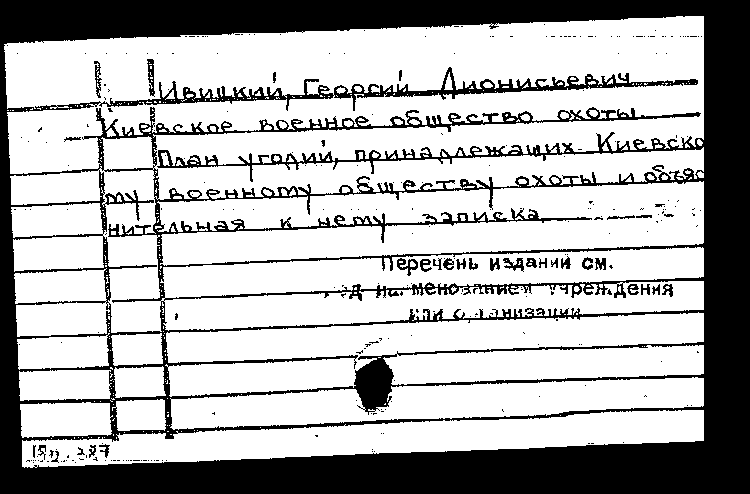 Ивицкий, Георгий Дионисьевич
Киевское военное общество охоты.
План угодий, принадлежащих Киевско
му военному обществу охоты и объяс
нительная к нему записка
Перечень изданий см.
под наименованием учреждения
или организации
287